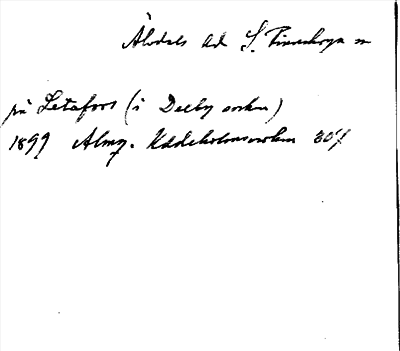 Älvdals hd S. Finnskoga sn
på Letafors (i Dalby socken)
1899 Almq. Uddeholmsverken 304